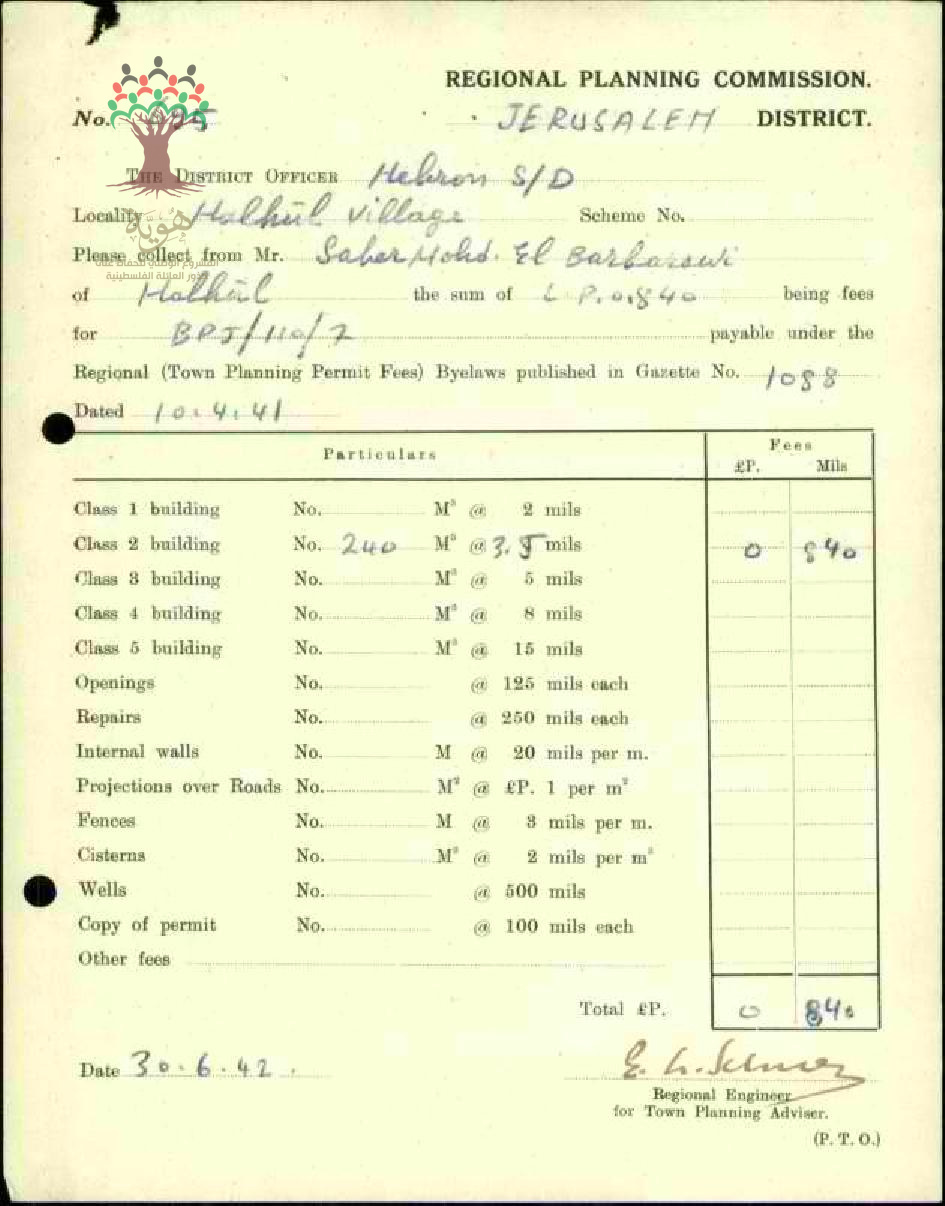 REGIONAL PLANNING COMMISSION.
No. JERUSALEM DISTRICT.
THE DISTRICT OFFICER Hebron S/D
Locality Halhūl village Scheme No.
Please collect from Mr. Saber Mohd. El Barbarawi
هُويّة
المشروع الوطني للحفاظ على
جذور العائلة الفلسطينية
of Halhūl the sum of L P. 0.840 being fees
for BPJ/110/7 payable under the
Regional (Town Planning Permit Fees) Byelaws published in Gazette No. 1088
Dated 10.4.41
Particulars Fees
£P. Mils
Class 1 building No. M³ @ 2 mils
Class 2 building No. 240 M³ @ 3.5 mils 0 840
Class 3 building No. M³ @ 5 mils
Class 4 building No. M³ @ 8 mils
Class 5 building No. M³ @ 15 mils
Openings No. @ 125 mils each
Repairs No. @ 250 mils each
Internal walls No. M @ 20 mils per m.
Projections over Roads No. M² @ £P. 1 per m²
Fences No. M @ 3 mils per m.
Cisterns No. M³ @ 2 mils per m³
Wells No. @ 500 mils
Copy of permit No. @ 100 mils each
Other fees
Total £P. 0 840
Date 30.6.42.
Regional Engineer
for Town Planning Adviser.
(P. T. O.)